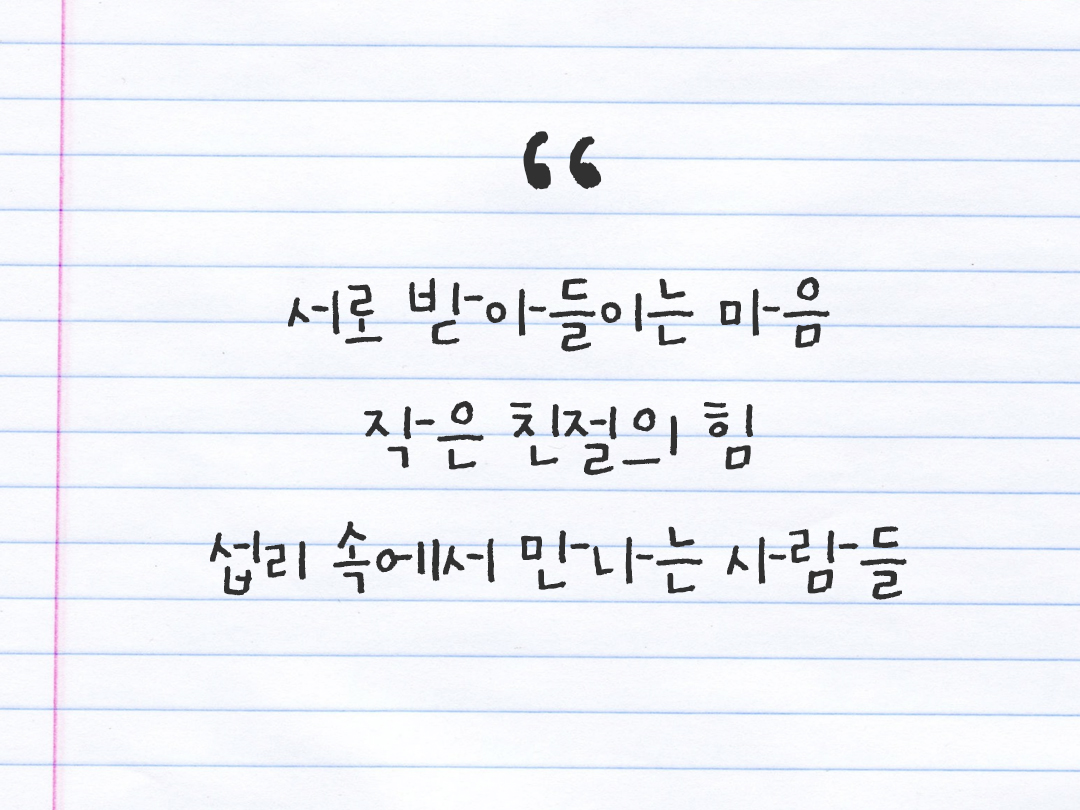 “
서로 받아들이는 마음
작은 친절의 힘
섭리 속에서 만나는 사람들